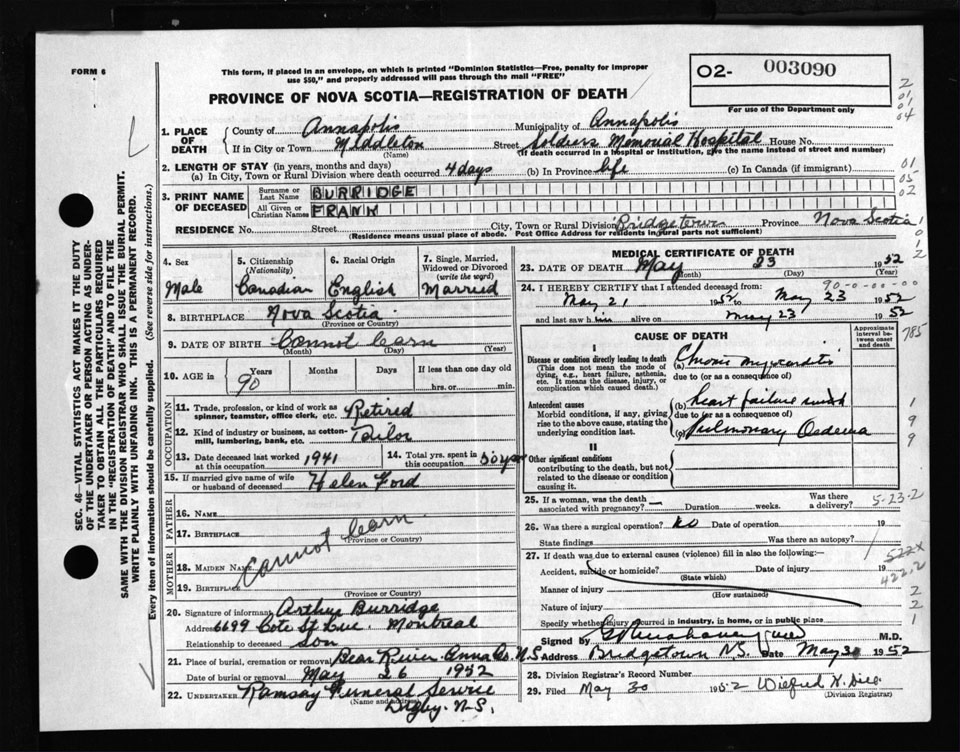 FORM 6
This form, if placed in an envelope, on which is printed "Dominion Statistics—Free, penalty for improper
use $50," and properly addressed will pass through the mail "FREE"
O2- 003090
For use of the Department only
PROVINCE OF NOVA SCOTIA—REGISTRATION OF DEATH
2
01
01
04
1. PLACE OF DEATH
County of Annapolis Municipality of Annapolis
If in City or Town Middleton Street Soldiers Memorial Hospital House No.
(Name) (If death occurred in a hospital or institution, give the name instead of street and number)
2. LENGTH OF STAY (in years, months and days)
(a) In City, Town or Rural Division where death occurred 4 days (b) In Province life (c) In Canada (if immigrant)
01
05
02
3. PRINT NAME OF DECEASED
Surname or Last Name BURRIDGE
All Given or Christian Names FRANK
RESIDENCE No. Street City, Town or Rural Division Bridgetown Province Nova Scotia
(Residence means usual place of abode. Post Office Address for residents in rural parts not sufficient)
4. Sex Male
5. Citizenship (Nationality) Canadian
6. Racial Origin English
7. Single, Married, Widowed or Divorced (write the word) Married
8. BIRTHPLACE Nova Scotia
(Province or Country)
9. DATE OF BIRTH Cannot learn
(Month) (Day) (Year)
10. AGE in Years 90 Months Days If less than one day old
hrs. or min.
OCCUPATION
11. Trade, profession, or kind of work as spinner, teamster, office clerk, etc. Retired
12. Kind of industry or business, as cotton-mill, lumbering, bank, etc. Tailor
13. Date deceased last worked at this occupation 1941
14. Total yrs. spent in this occupation 50 yrs
15. If married give name of wife or husband of deceased Helen Ford
FATHER
16. Name
17. Birthplace
(Province or Country)
Cannot learn
MOTHER
18. MAIDEN NAME
19. Birthplace
(Province or Country)
Cannot learn
20. Signature of informant Arthur Burridge
Address 6699 Cote St Luc. Montreal
Relationship to deceased Son
21. Place of burial, cremation or removal Bear River Anna Co. N.S
Date of burial or removal May 26 1952
22. UNDERTAKER Ramsay Funeral Service
(Name and address) Digby. N.S.
MEDICAL CERTIFICATE OF DEATH
23. DATE OF DEATH May 23 1952
(Month) (Day) (Year)
24. I HEREBY CERTIFY that I attended deceased from:
90-0-00-00
May 21 1952 to May 23 1952
and last saw him alive on May 23 1952
785
CAUSE OF DEATH
Approximate interval between onset and death
I
Disease or condition directly leading to death
(This does not mean the mode of dying, e.g., heart failure, asthenia, etc. It means the disease, injury, or complication which caused death.)
(a) Chronic myocarditis
due to (or as a consequence of)
Antecedent causes
Morbid conditions, if any, giving rise to the above cause, stating the underlying condition last.
(b) heart failure with
due to (or as a consequence of)
(c) Pulmonary Oedema
1
9
9
II
Other significant conditions contributing to the death, but not related to the disease or condition causing it.
25. If a woman, was the death associated with pregnancy? — Duration weeks. Was there a delivery?
5-23-2
26. Was there a surgical operation? No Date of operation 19
State findings Was there an autopsy?
27. If death was due to external causes (violence) fill in also the following:
Accident, suicide or homicide? Date of injury 19
(State which)
522X
422.2
Manner of injury
(How sustained)
Nature of injury
2
2
1
Specify whether injury occurred in industry, in home, or in public place
Signed by M.D.
Address Bridgetown N.S. Date May 30 1952
28. Division Registrar's Record Number
29. Filed May 30 1952 Wilfred H.
(Division Registrar)
SEC. 46—VITAL STATISTICS ACT MAKES IT THE DUTY
OF THE UNDERTAKER OR PERSON ACTING AS UNDER-
TAKER TO OBTAIN ALL THE PARTICULARS REQUIRED
IN THE "REGISTRATION OF DEATH" AND TO FILE THE
SAME WITH THE DIVISION REGISTRAR WHO SHALL ISSUE THE BURIAL PERMIT.
WRITE PLAINLY WITH UNFADING INK. THIS IS A PERMANENT RECORD.
Every item of information should be carefully supplied. (See reverse side for instructions.)